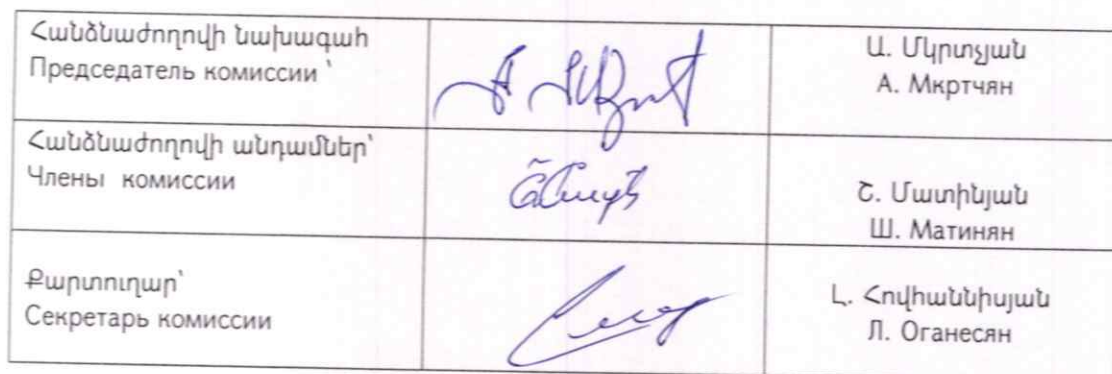 Հանձնաժողովի նախագահ
Председатель комиссии ՝
Ա. Մկրտչյան
А. Мкртчян
Հանձնաժողովի անդամներ՝
Члены комиссии
Շ. Մատինյան
Ш. Матинян
Քարտուղար՝
Секретарь комиссии
Լ. Հովհաննիսյան
Л. Оганесян